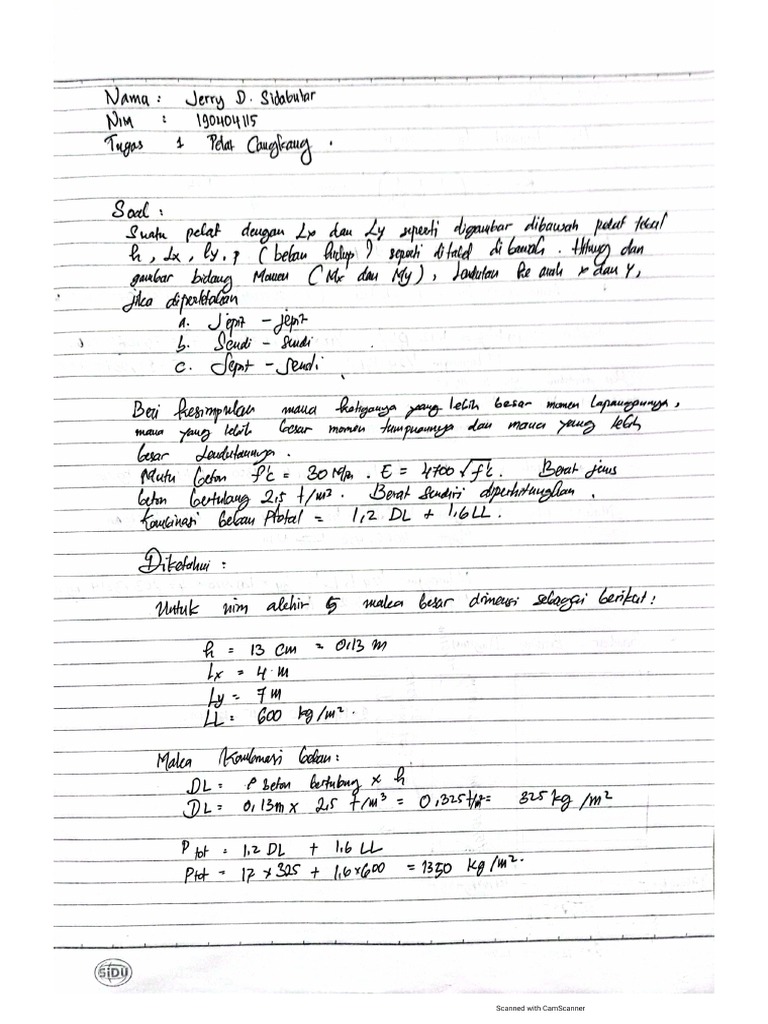 Nama : Jerry D. Sidabutar
NIM : 190404115
Tugas 1 Pelat Cangkang .
Soal :
Suatu pelat dengan Lx dan Ly seperti digambar dibawah pelat tebal
h , Lx , Ly , q ( beban hidup ) seperti ditabel di bawah . Hitung dan
gambar bidang Momen ( Mx dan My ) , lendutan ke arah x dan y ,
jika diperletakan
a. Jepit - jepit
b. Sendi - sendi
c. Jepit - sendi
Beri kesimpulan mana ketiganya yang lebih besar momen lapangannya ,
mana yang lebih besar momen tumpuannya dan mana yang lebih
besar lendutannya .
Mutu beton f'c = 30 Mpa . E = 4700 √f'c . Berat jenis
beton bertulang 2,5 t/m² . Berat sendiri diperhitungkan .
Kombinasi beban Ptotal = 1,2 DL + 1,6 LL .
Diketahui :
Untuk nim akhir 5 maka besar dimensi sebagai berikut :
h = 13 cm = 0,13 m
Lx = 4 m
Ly = 7 m
LL = 600 kg/m² .
Maka Kombinasi beban :
DL = ρ beton bertulang x h
DL = 0,13m x 2,5 t/m³ = 0,325 t/m² = 325 kg/m²
P tot = 1,2 DL + 1,6 LL
Ptot = 12 x 325 + 1,6x600 = 1350 kg/m² .
SiDU
Scanned with CamScanner